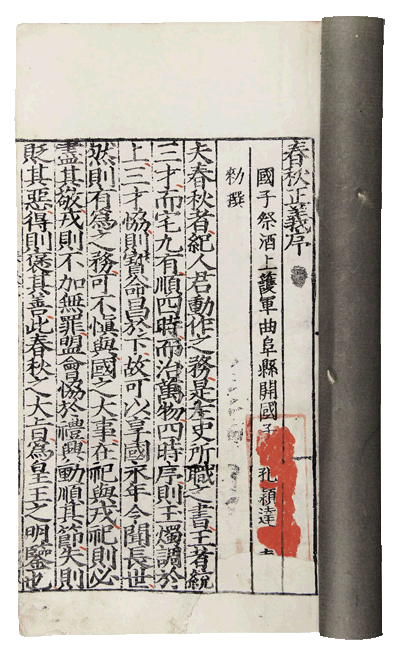 春秋正義序
國子祭酒上護軍曲阜縣開國子 孔穎達 奉
勑撰
夫春秋者紀人君動作之務是左史所職之書王者統
三才而宅九有順四時而治萬物四時序則玉燭調於
上三才協則寶命昌於下故可以享國永年令聞長世
然則有為之務可不慎與國之大事在祀與戎祀則必
盡其敬戎則不加無罪盟會協於禮興動順其節失則
貶其惡得則褒其善此春秋之大旨為皇王之明鑒也